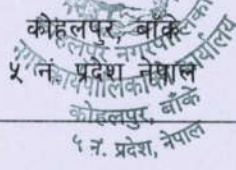 कोहलपुर, बाँके
५ नं. प्रदेश नेपाल
कोहलपुर नगरपालिका
नगर कार्यपालिकाको कार्यालय
कोहलपुर, बाँके
५ नं. प्रदेश, नेपाल